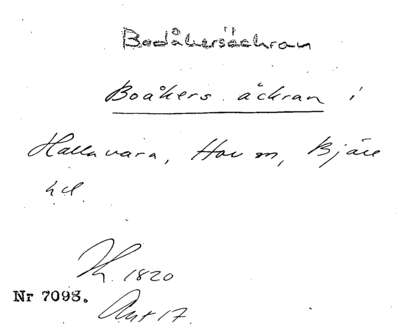 Bodåkersäckran
Boåkers äckran i
Hallavara, Hov sn, Bjäre
hd.
1820
Nr 7098.
Akt 17